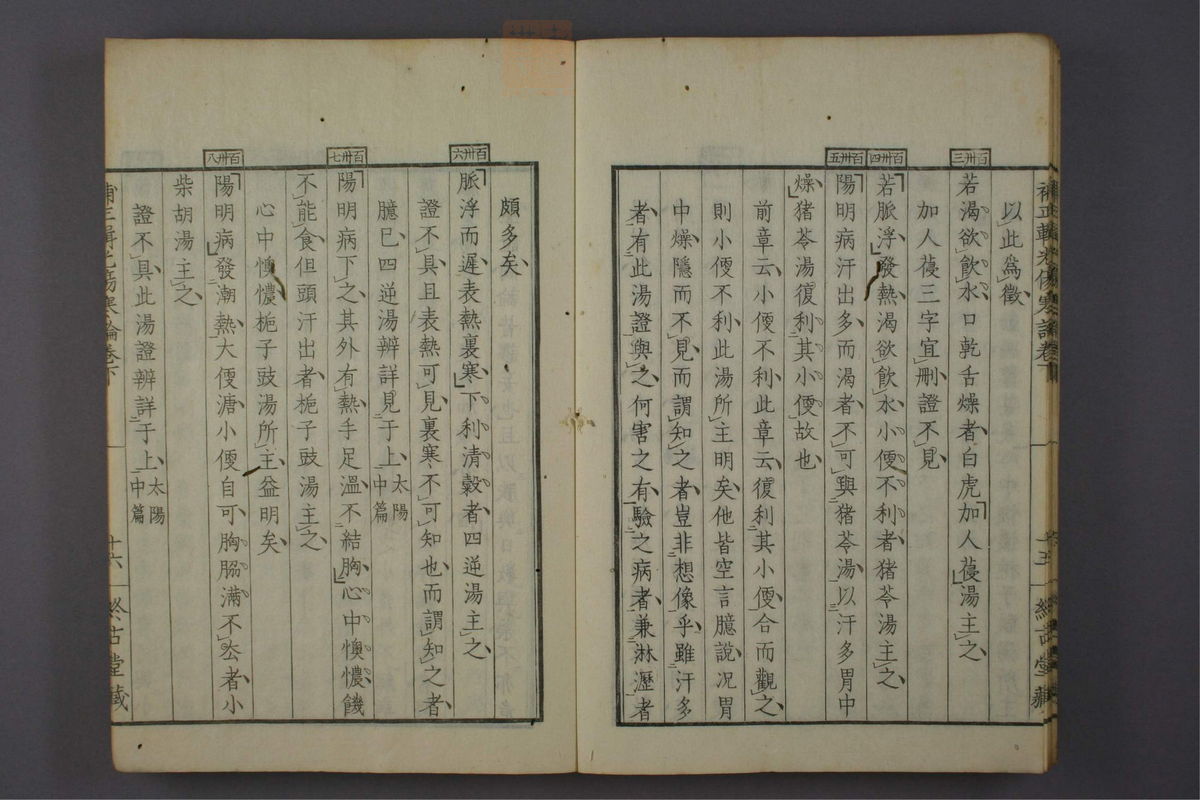 補正輯光傷寒論卷下
以此爲徵
百卅三
若渴欲飲水口乾舌燥者白虎加人葠湯主之
加人葠三字宜刪證不見
百卅四
若脈浮發熱渴欲飲水小便不利者猪苓湯主之
百卅五
陽明病汗出多而渴者不可與猪苓湯以汗多胃中
燥猪苓湯復利其小便故也
前章云小便不利此章云復利其小便合而觀之
則小便不利此湯所主明矣他皆空言臆說况胃
中燥隱而不見而謂知之者豈非想像乎雖汗多
者有此湯證與之何害之有驗之病者兼淋瀝者
頗多矣
百卅六
脈浮而遲表熱裏寒下利清穀者四逆湯主之
證不具且表熱可見裏寒不可知也而謂知之者
臆巳四逆湯辨詳見于上太陽中篇
百卅七
陽明病下之其外有熱手足溫不結胸心中懊憹饑
不能食但頭汗出者梔子豉湯主之
心中懊憹梔子豉湯所主益明矣
百卅八
陽明病發潮熱大便溏小便自可胸脇滿不去者小
柴胡湯主之
證不具此湯證辨詳于上太陽中篇
十六
終古堂藏